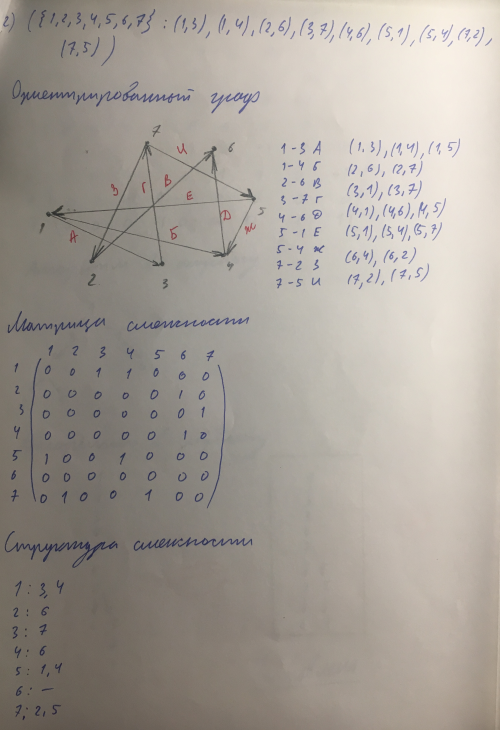 2) ({1,2,3,4,5,6,7} : (1,3), (1,4), (2,6), (3,7), (4,6), (5,1), (5,4), (7,2),
(7,5))
Ориентированный граф
7
И
6
З
Г
В
Е
Д
5
1
А
Б
Ж
2
3
4
1-3 А (1,3), (1,4), (1,5)
1-4 Б (2,6), (2,7)
2-6 В (3,1), (3,7)
3-7 Г (4,1), (4,6), (4,5)
4-6 Д (5,1), (5,4), (5,7)
5-1 Е (6,4), (6,2)
5-4 Ж (7,2), (7,5)
7-2 З
7-5 И
Матрица смежности
1 2 3 4 5 6 7
1 0 0 1 1 0 0 0
2 0 0 0 0 0 1 0
3 0 0 0 0 0 0 1
4 0 0 0 0 0 1 0
5 1 0 0 1 0 0 0
6 0 0 0 0 0 0 0
7 0 1 0 0 1 0 0
Структура смежности
1: 3,4
2: 6
3: 7
4: 6
5: 1,4
6: —
7: 2,5